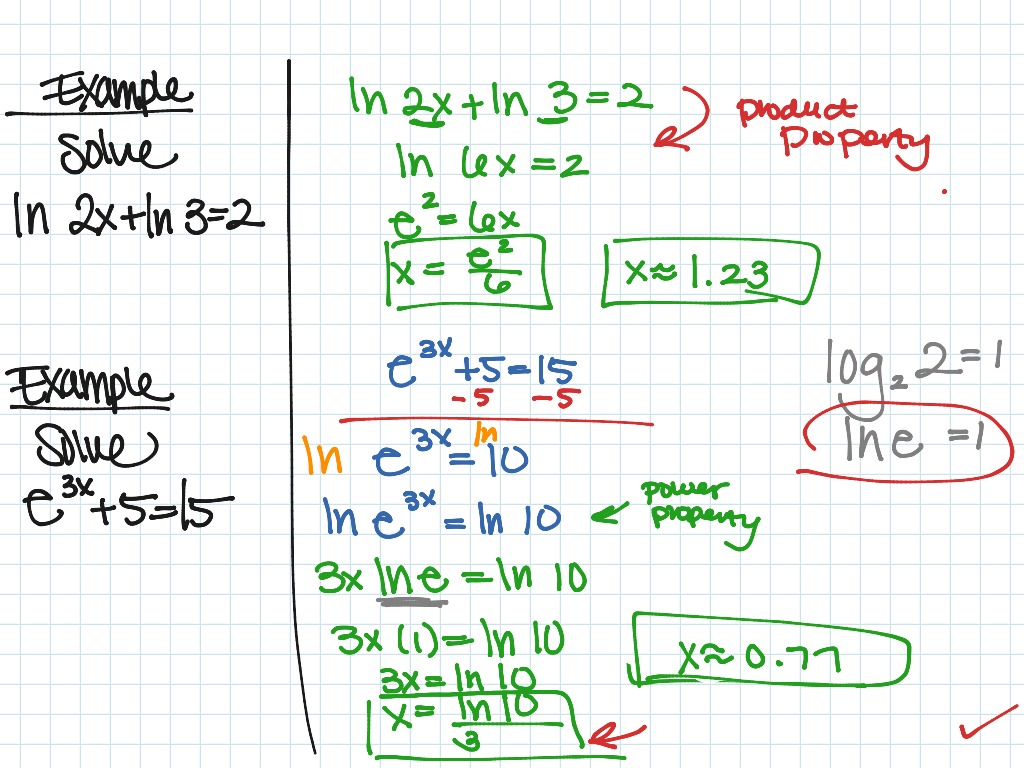 Example
Solve
ln 2x+ln 3=2
ln 2x+ln 3=2
product
property
ln 6x=2
e²=6x
x = e²/6
x≈1.23
Example
Solve
e^3x+5=15
e^3x+5=15
-5 -5
ln e^3x = ln 10
ln e^3x = ln 10
power
property
3x ln e = ln 10
3x (1) = ln 10
3x = ln 10
x = ln 10/3
x≈0.77
log₂2=1
ln e =1